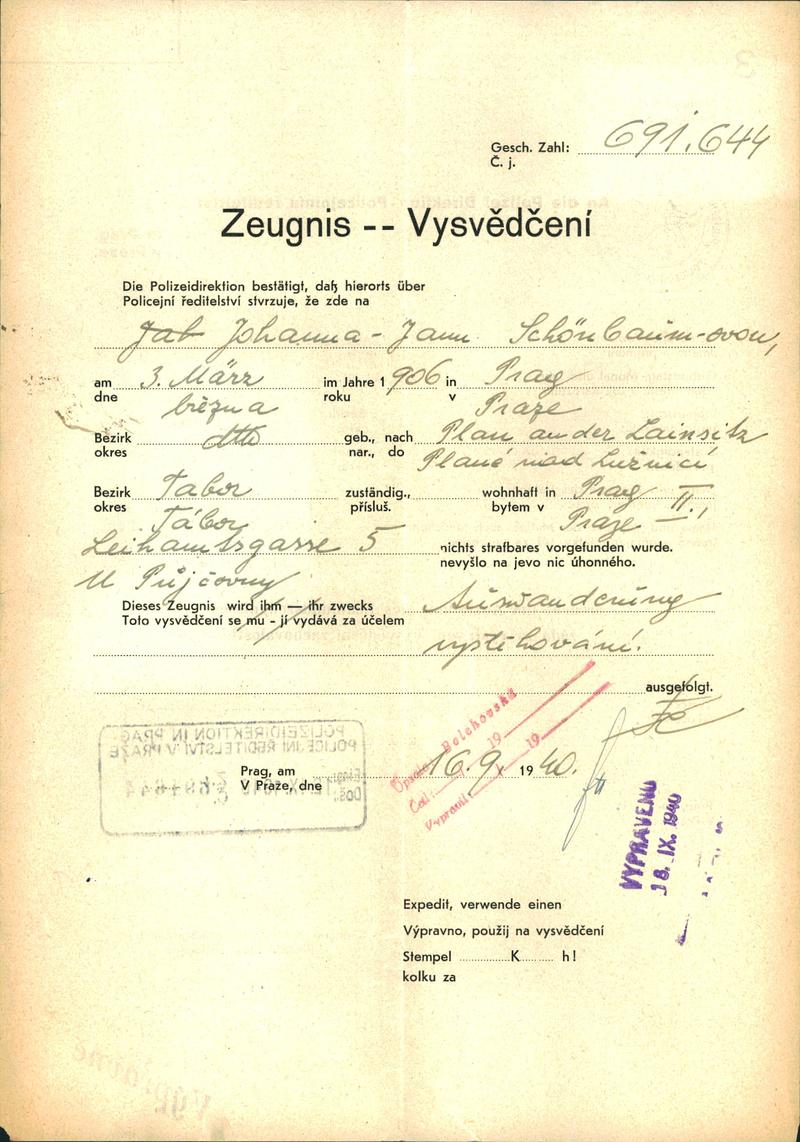 Gesch. Zahl: 691.644
Č. j.
Zeugnis -- Vysvědčení
Die Polizeidirektion bestätigt, daß hierorts über
Policejní ředitelství stvrzuje, že zde na
Johanna - Jana Schönbaum-ovou,
am 3. März im Jahre 1906 in Prag
dne března roku v Praze
Bezirk dtto geb., nach Plan an der Lainsitz
okres nar., do Plané nad Lužnicí
Bezirk Tabor zuständig., wohnhaft in Prag II.,
okres Tábor přísluš. bytem v Praze
Leihamtsgasse 5 nichts strafbares vorgefunden wurde.
U Půjčovny nevyšlo na jevo nic úhonného.
Dieses Zeugnis wird ihm — ihr zwecks Auswanderung
Toto vysvědčení se mu - jí vydává za účelem
vystěhování.
ausgefolgt.
POLIZEIDIREKTION IN PRAG
POLICEJNÍ ŘEDITELSTVÍ V PRAZE
Bolehovská
19
Čet.: 19
Vypravil:
Prag, am 16.9. 1940.
V Praze, dne
VYPRAVENO
18. IX. 1940
Expedit, verwende einen
Výpravno, použij na vysvědčení
Stempel K h!
kolku za
Výpravně